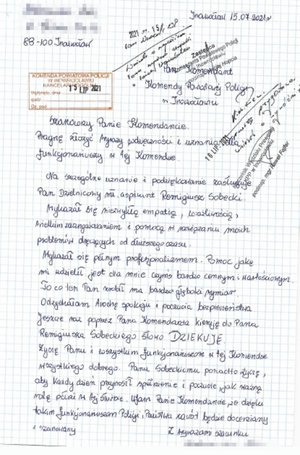 Inowrocław 15.07.2021r
88-100 Inowrocław
Pan Komendant
Komendy Powiatowej Policji
w Inowrocławiu
KOMENDA POWIATOWA POLICJI
W INOWROCŁAWIU
Szanowny Panie Komendancie.
Pragnę złożyć wyrazy wdzięczności i uznania dla
funkcjonariuszy w tej Komendzie
Na szczególne uznanie i podziękowanie zasługuje
Pan Dzielnicowy mł. aspirant Remigiusz Sobecki.
Wykazał się niezwykłą empatią, wrażliwością,
wielkim zaangażowaniem i pomocą w rozwiązaniu moich
problemów dręczących od dłuższego czasu.
Wykazał się pełnym profesjonalizmem. Pomoc jaką
mi udzielił jest dla mnie czymś bardzo cennym i wartościowym.
To co ten Pan zrobił ma bardzo głęboki wymiar
Odzyskałam trochę spokoju i poczucia bezpieczeństwa
Jeszcze raz poprzez Pana Komendanta kieruję do Pana
Remigiusza Sobeckiego słowo DZIĘKUJĘ
Życzę Panu i wszystkim funkcjonariuszom w tej Komendzie
wszystkiego dobrego. Panu Sobeckiemu ponadto życzę,
aby każdy dzień przynosił spełnienie i poczucie jak ważną
rolę pełni w tej służbie. Ufam Panie Komendancie, że dzięki
takim funkcjonariuszom Policji, Państwa zawód będzie doceniany
i szanowany
Z wyrazami szacunku